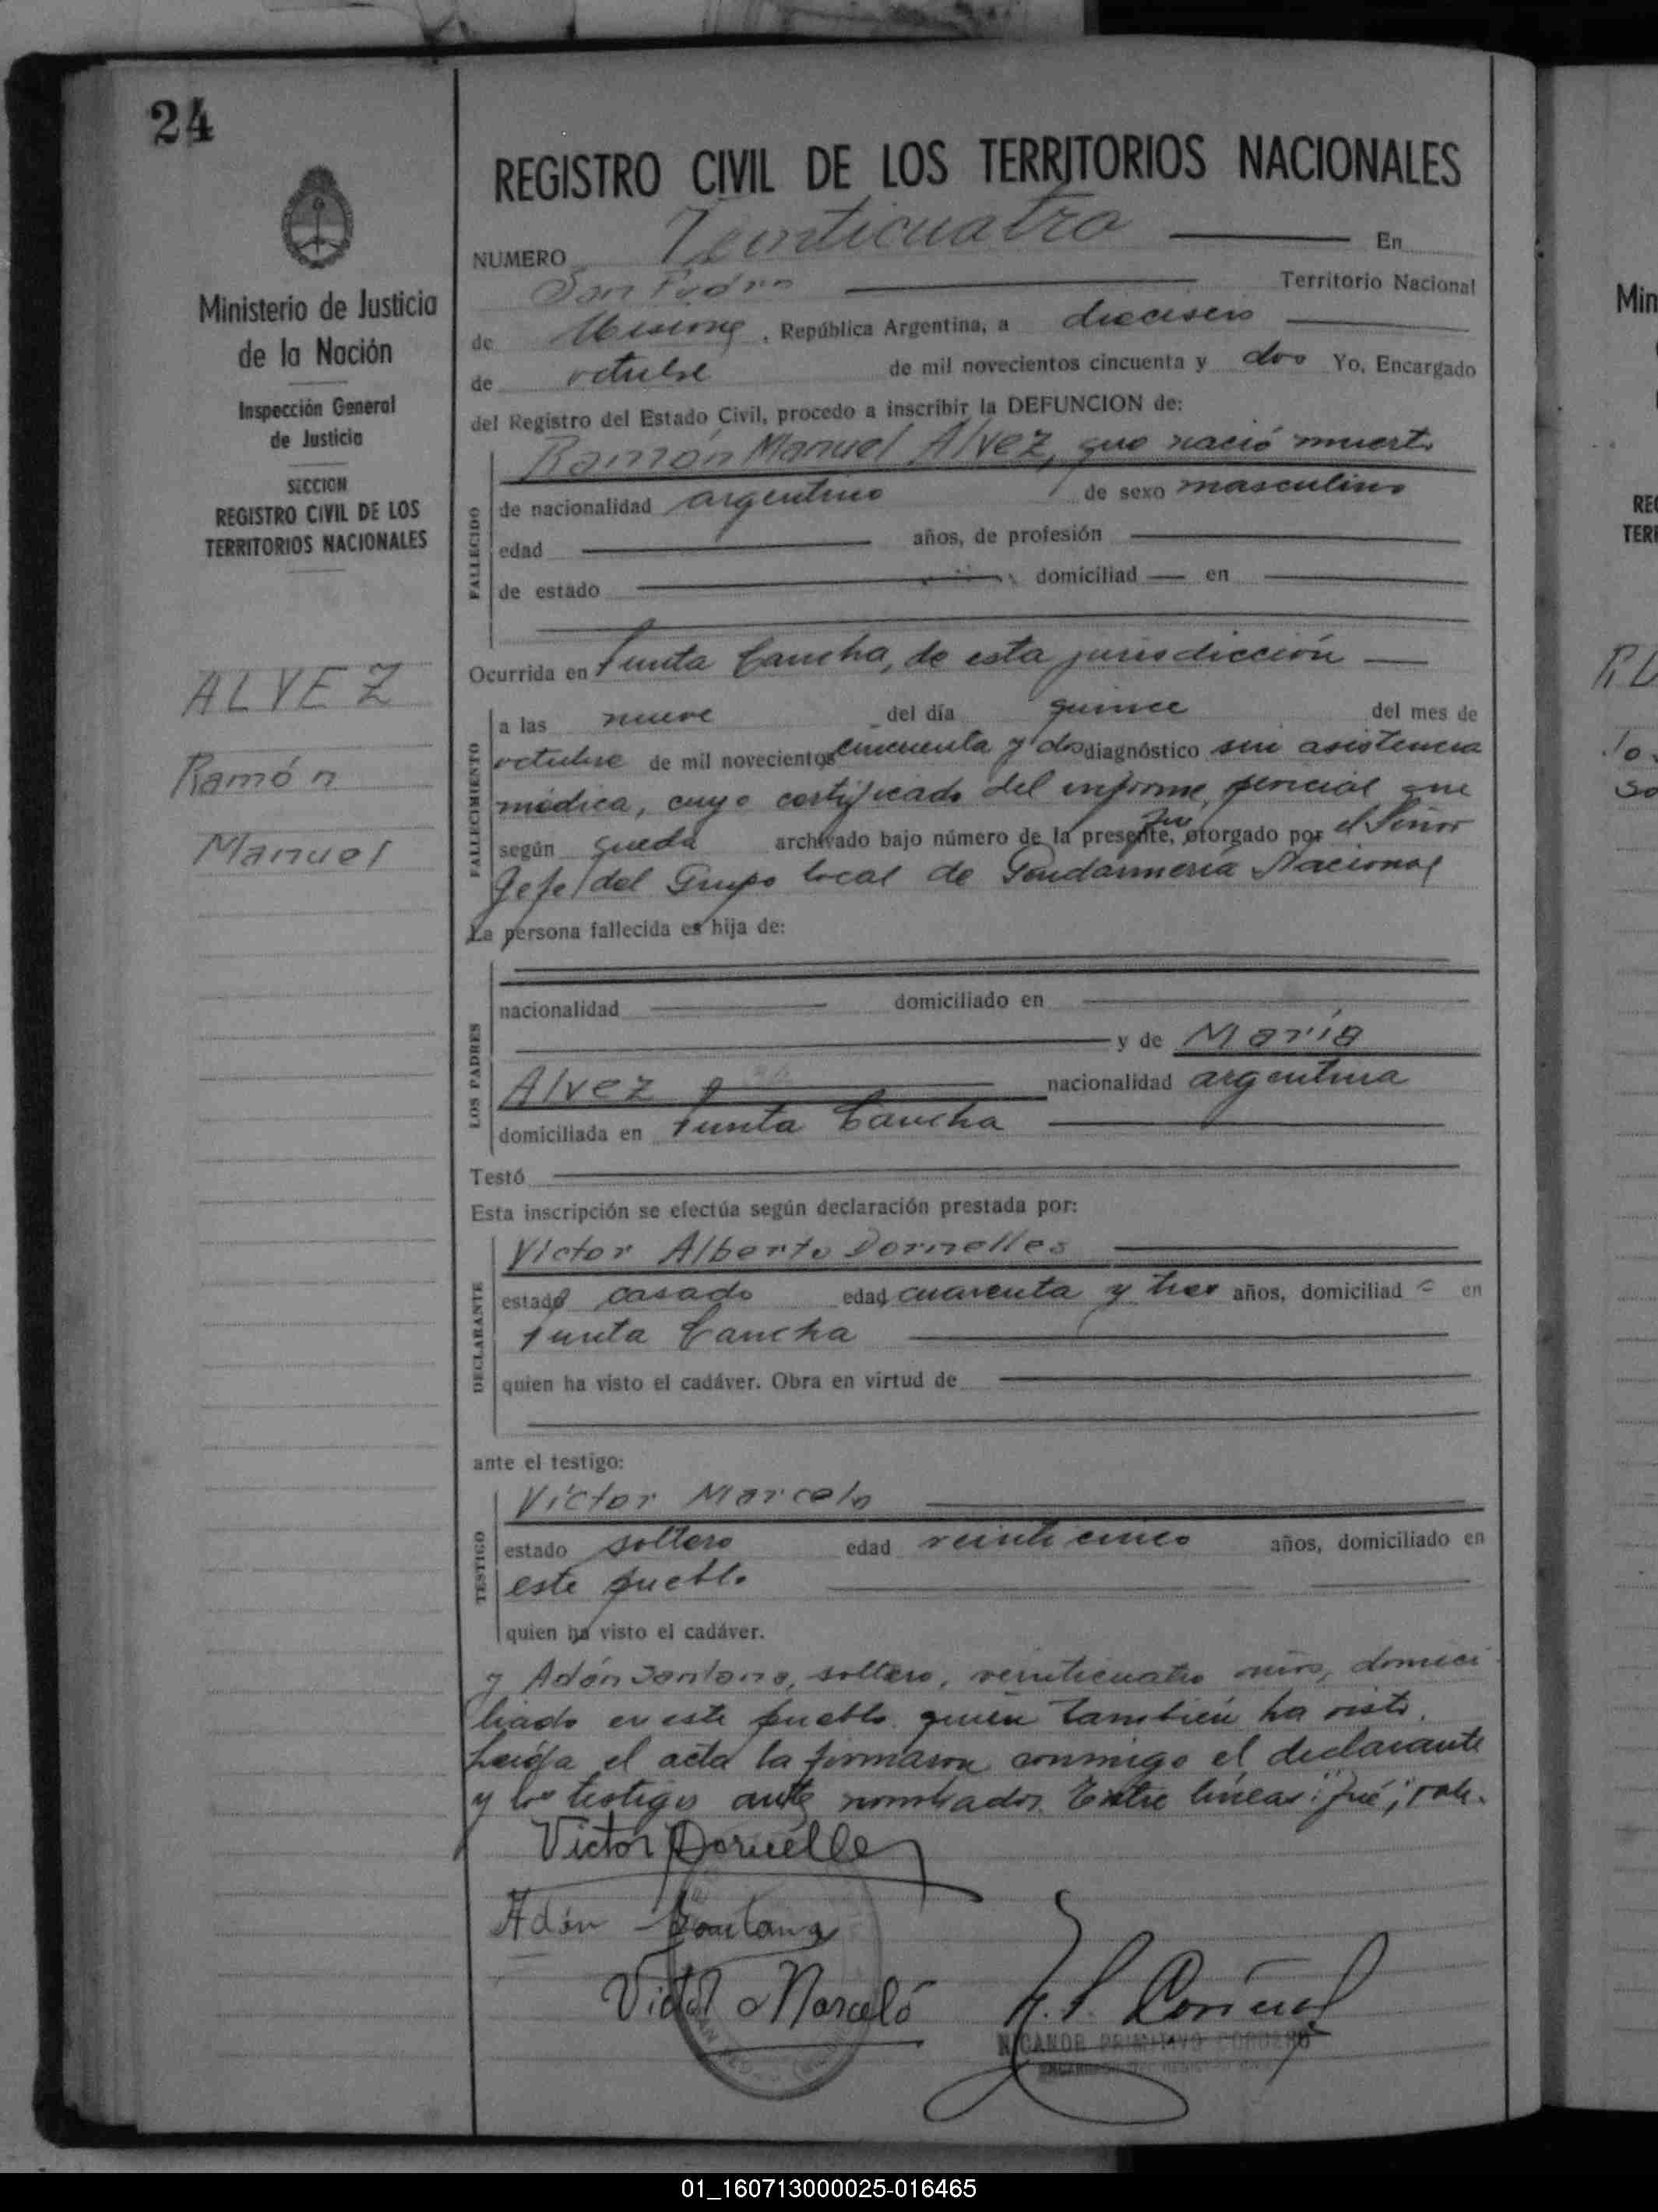 24
REGISTRO CIVIL DE LOS TERRITORIOS NACIONALES
NUMERO Veinticuatro En
San Pedro Territorio Nacional
de Misiones, República Argentina, a dieciseis
de octubre de mil novecientos cincuenta y dos Yo, Encargado
del Registro del Estado Civil, procedo a inscribir la DEFUNCION de:
Ministerio de Justicia
de la Nación
Inspección General
de Justicia
SECCION
REGISTRO CIVIL DE LOS
TERRITORIOS NACIONALES
ALVEZ
Ramón
Manuel
FALLECIDO
Ramón Manuel Alvez, que nació muerto
de nacionalidad argentino de sexo masculino
edad años, de profesión
de estado domiciliad en
Ocurrida en Punta Cancha, de esta jurisdicción
FALLECIMIENTO
a las nueve del día quince del mes de
octubre de mil novecientos cincuenta y dos diagnóstico sin asistencia
médica, cuyo certificado del informe pericial que
fué
según queda archivado bajo número de la presente, otorgado por el Señor
Jefe del Grupo local de Gendarmería Nacional
La persona fallecida es hija de:
LOS PADRES
nacionalidad domiciliado en
y de María
Alvez nacionalidad argentina
domiciliada en Punta Cancha
Testó
Esta inscripción se efectúa según declaración prestada por:
DECLARANTE
Víctor Alberto Dornelles
estado casado edad cuarenta y tres años, domiciliad o en
Punta Cancha
quien ha visto el cadáver. Obra en virtud de
ante el testigo:
TESTIGO
Víctor Marcelo
estado soltero edad veinticinco años, domiciliado en
este pueblo
quien ha visto el cadáver.
y Adán Santana, soltero, veinticuatro años, domici
liado en este pueblo quien también ha visto.
Leída el acta la firmaron conmigo el declarante
y los testigos ante nombrados. Entre líneas: "fué", vale.
Victor Dornelles
Adán Santana
Victor Marceló
N. P. Cordero
NICANOR PRIMITIVO CORDERO
01_160713000025-016465